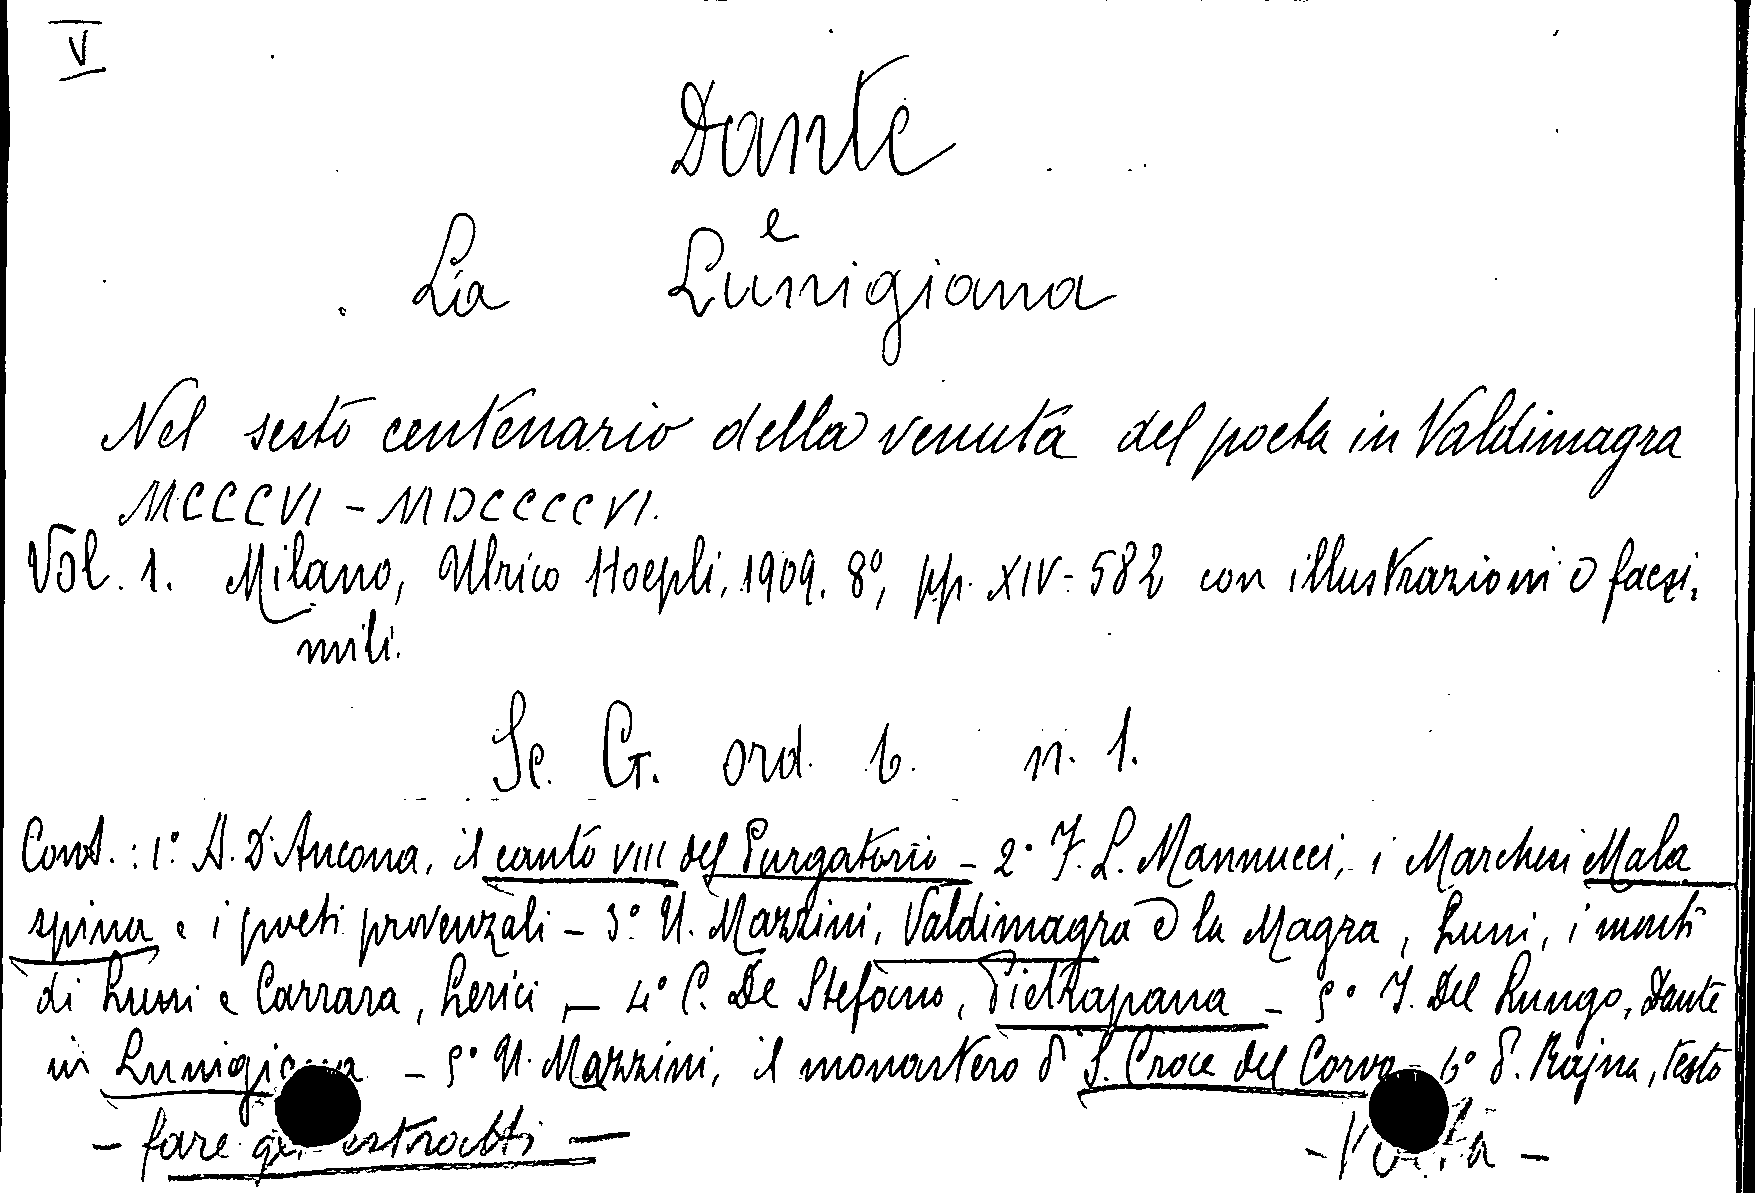 V
Dante
e
La Lunigiana
Nel sesto centenario della venuta del poeta in Valdimagra
MCCCVI - MDCCCCVI.
Vol. 1. Milano, Ulrico Hoepli, 1909. 8°, pp. XIV-582 con illustrazioni e facsi-
mili.
Sc. G. ord. 6. n. 1.
Cont.: 1° A. D'Ancona, il canto VIII del Purgatorio - 2° F. L. Mannucci, i Marchesi Mala
spina e i poeti provenzali - 3° U. Mazzini, Valdimagra e la Magra, Luni, i monti
di Luni e Carrara, Lerici, - 4° C. De Stefano, Pietrapana - 5° I. Del Lungo, Dante
in Lunigiana - 5° U. Mazzini, il monastero di S. Croce del Corvo - 6° P. Rajna, testo
- fare gli estratti -
- Volta -